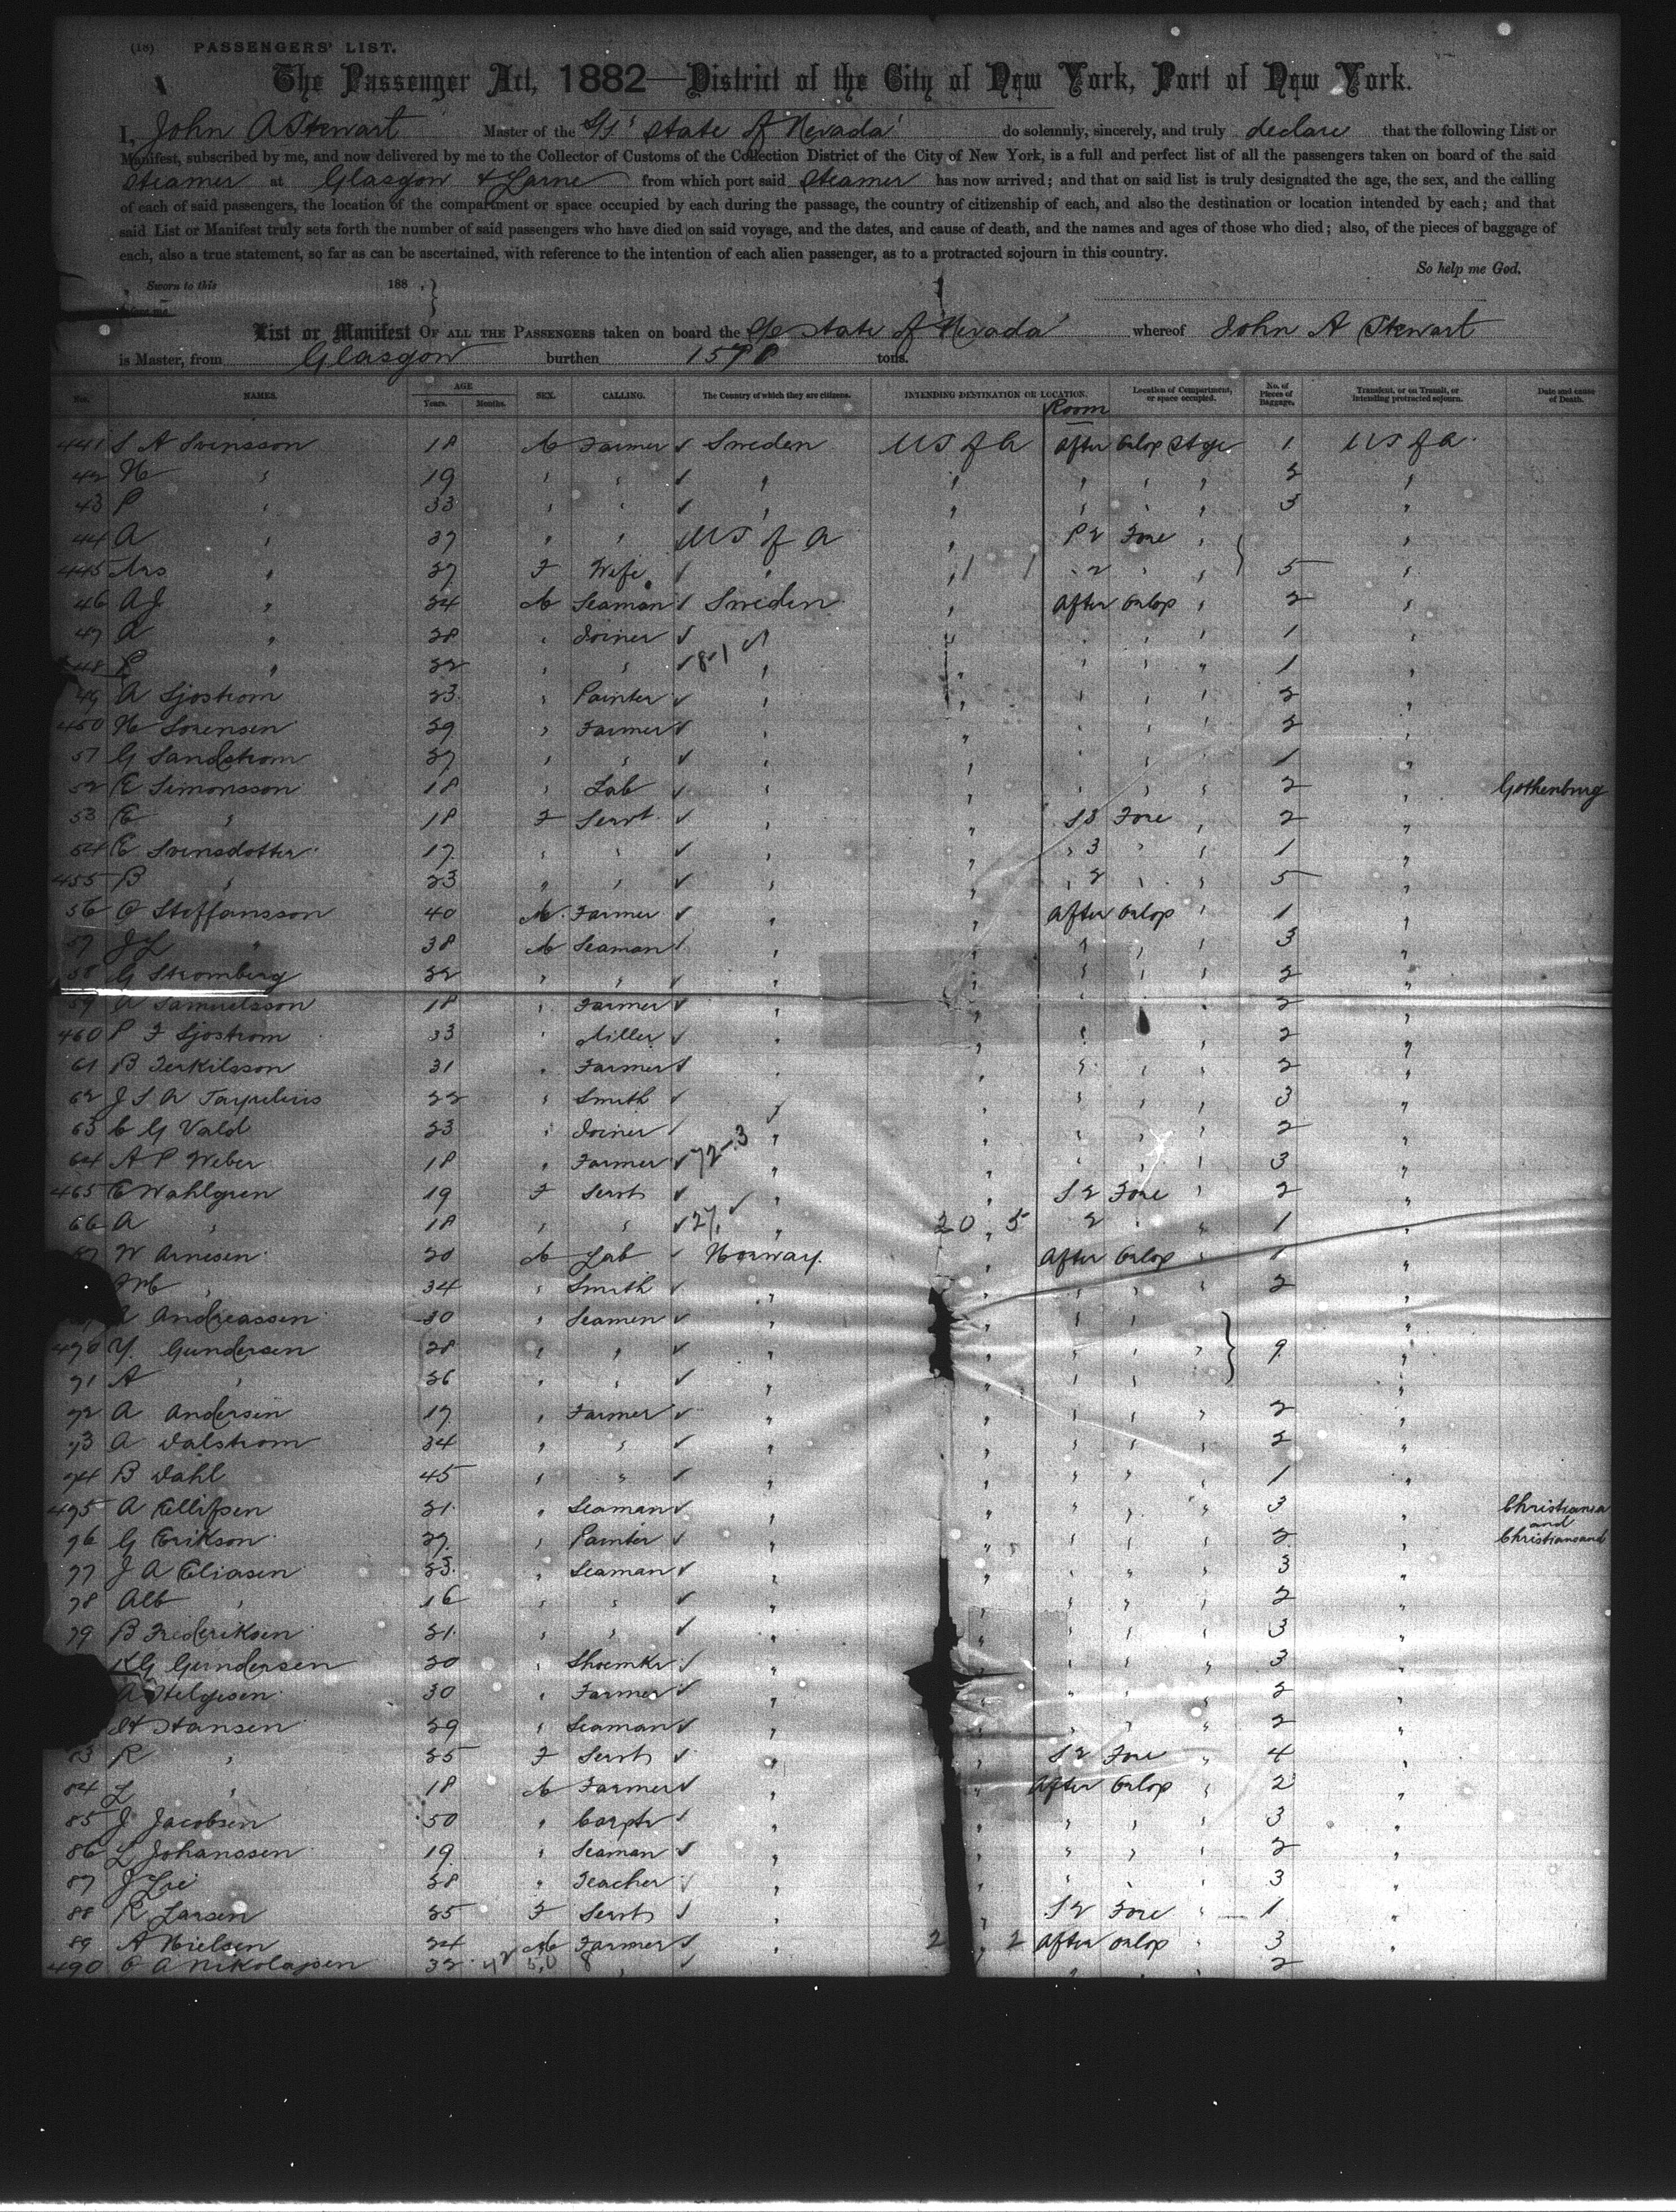 (18) PASSENGERS' LIST.
The Passenger Act, 1882—District of the City of New York, Port of New York.
I, John A Stewart Master of the S/S "State of Nevada" do solemnly, sincerely, and truly declare that the following List or
Manifest, subscribed by me, and now delivered by me to the Collector of Customs of the Collection District of the City of New York, is a full and perfect list of all the passengers taken on board of the said
Steamer at Glasgow & Larne from which port said Steamer has now arrived; and that on said list is truly designated the age, the sex, and the calling
of each of said passengers, the location of the compartment or space occupied by each during the passage, the country of citizenship of each, and also the destination or location intended by each; and that
said List or Manifest truly sets forth the number of said passengers who have died on said voyage, and the dates, and cause of death, and the names and ages of those who died; also, of the pieces of baggage of
each, also a true statement, so far as can be ascertained, with reference to the intention of each alien passenger, as to a protracted sojourn in this country.
So help me God.
Sworn to this 188 }
before me
List or Manifest OF ALL THE PASSENGERS taken on board the State of Nevada whereof John A Stewart
is Master, from Glasgow burthen tons.
Nos. NAMES. AGE Years. Months. SEX. CALLING. The Country of which they are citizens. INTENDING DESTINATION OR LOCATION. Location of Compartment, or space occupied. No. of Pieces of Baggage. Transient, or on Transit, or intending protracted sojourn. Date and cause of Death.
Room
441 S A Svensson 18 M Farmer ✓ Sweden US of A After Orlop Stge 1 US of A
42 N " 19 " " ✓ " " " " " 2 "
43 P " 33 " " ✓ " " " " " 3 "
44 A " 37 " " US of A " P 2 Fore " "
445 Mrs " 27 F Wife " " 2 " " } 5 "
46 A J " 24 M Seaman ✓ Sweden " After Orlop " 2 "
47 A " 28 " Joiner ✓ " " " " 1 "
48 P " 22 " " ✓ 8-1 " " " " " 1 "
49 A Sjostrom 23 " Painter ✓ " " " " " 2 "
450 N Sorensen 29 " Farmer ✓ " " " " " 2 "
51 G Sandstrom 27 " " ✓ " " " " " 1 "
52 E Simonsson 18 " Lab ✓ " " " " " 2 " Gothenburg
53 E " 18 F Servt ✓ " " S 3 Fore " 2 "
54 E Svensdotter 17 " " ✓ " " " 3 " " 1 "
455 B " 23 " " ✓ " " " 2 " " 5 "
56 O Steffansson 40 M Farmer ✓ " " After Orlop " 1 "
57 J L " 38 M Seaman ✓ " " " " " 3 "
58 G Stromberg 22 " " ✓ " " " " " 2 "
59 A Samuelsson 18 " Farmer ✓ " " 2 "
460 P F Sjostrom 33 " Miller ✓ " " " " 2 "
61 B Terkilsson 31 " Farmer ✓ " " " " " 2 "
62 J S A 22 " Smith ✓ " " " " " 3 "
63 C G Vald 23 " Joiner " " " " " 2 "
64 A P Weber 18 " Farmer ✓ 72-3 " " " " " 3 "
465 E Wahlgren 19 F Servt ✓ " " S 2 Fore " 2 "
66 A " 18 " " ✓ 27 " 20 " 5 2 " " 1 "
67 W Arnesen 20 M Lab ✓ Norway " After Orlop " 1 "
" 34 " Smith ✓ " " " " " 2 "
A Andreassen 30 " Seamen ✓ " " " " "
470 Y Gundersen 28 " " ✓ " " " " " } 9 "
71 A " 26 " " ✓ " " " " "
72 A Andersen 17 " Farmer ✓ " " " " " 2 "
73 A Dalstrom 34 " " ✓ " " " " " 2 "
74 B Dahl 45 " " ✓ " " " " " 1 "
475 A Ellifsen 21 " Seaman ✓ " " " " " 3 " Christiania
and
76 G Erikson 27 " Painter ✓ " " " " " 2 " Christiansand
77 J A Eliasen 23 " Seaman ✓ " " " " " 3 "
78 Alb " 16 " " ✓ " " " " 2 "
79 B Frederiksen 21 " " ✓ " " " " " 3 "
K G Gundersen 20 " Shoemkr ✓ " " " " 3 "
A Helgesen 30 " Farmer ✓ " " " " 2 "
Hansen 29 " Seaman ✓ " " " " 2 "
83 R " 25 F Servt ✓ " " S 2 Fore " 4 "
84 L " 18 M Farmer ✓ " " After Orlop " 2 "
85 J Jacobsen 50 " Carptr ✓ " " " " " 3 "
86 L Johanssen 19 " Seaman ✓ " " " " " 2 "
87 J Lie 28 " Teacher ✓ " " " " 3 "
88 R Larsen 25 F Servt ✓ " " S 2 Fore " 1 "
89 A Nielsen 24 M Farmer ✓ " 2 " 2 After Orlop " 3 "
490 O A Nikolajsen 32 " ✓ " " 2